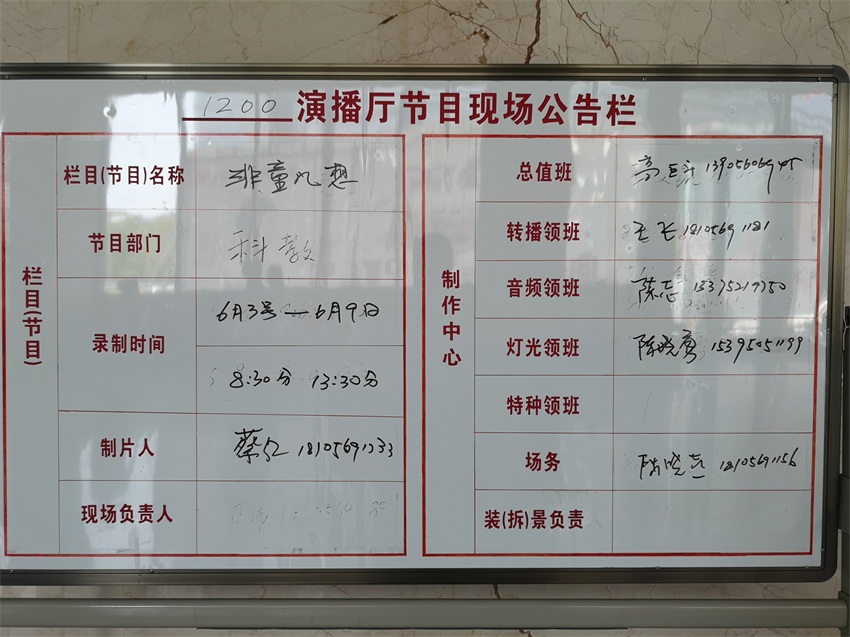 1200 演播厅节目现场公告栏
栏目(节目)
栏目(节目)名称 非童凡想
节目部门 科教
录制时间 6月3号—6月9日
8:30分 13:30分
制片人 蔡 18105691033
现场负责人
制作中心
总值班 高
转播领班 王飞 18105691181
音频领班 陈志 13395219750
灯光领班 陈晓勇 15395051199
特种领班
场务 陈晓 18105691156
装(拆)景负责